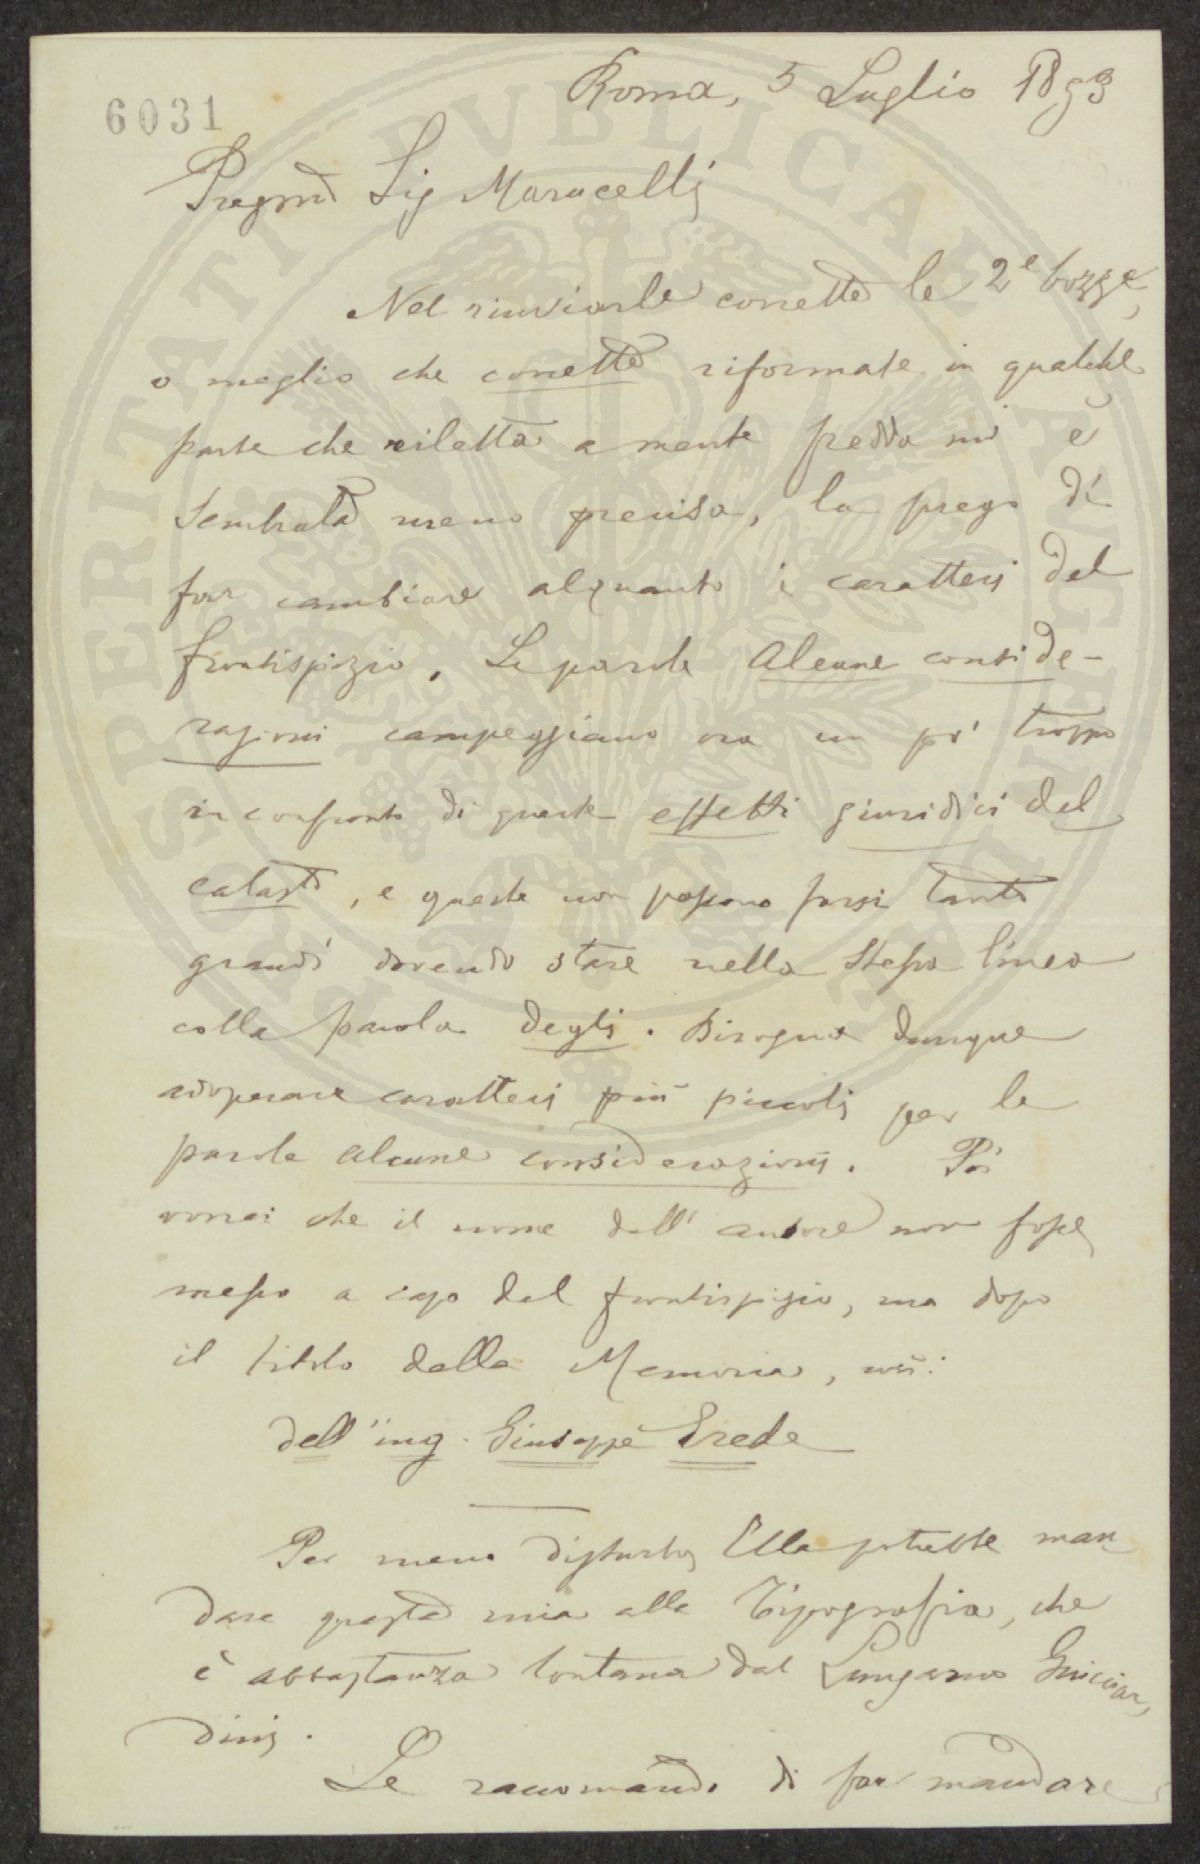 6031
Roma, 5 Luglio 1893
Pregmo Sig Marucelli
Nel rinviarle corrette le 2e bozze,
o meglio che corrette riformate in qualche
parte che riletta a mente fredda mi è
sembrata meno precisa, la prego di
far cambiare alquanto i caratteri del
frontispizio. Le parole Alcune conside-
razioni campeggiano ora un po' troppo
in confronto di queste effetti giuridici del
catasto, e queste non possono farsi tanto
grandi dovendo stare nella stessa linea
colla parola degli. Bisogna dunque
adoperare caratteri più piccoli per le
parole alcune considerazioni. Poi
vorrei che il nome dell'autore non fosse
messo a capo del frontispizio, ma dopo
il titolo della Memoria, così:
dell'ing. Giuseppe Erede
Per meno disturbo, Ella potrebbe man
dare questa mia alla Tipografia, che
è abbastanza lontana dal Lungarno Guicciar
dini.
Le raccomando di far mandare
PROSPERITATI PVBLICAE AVGENDAE